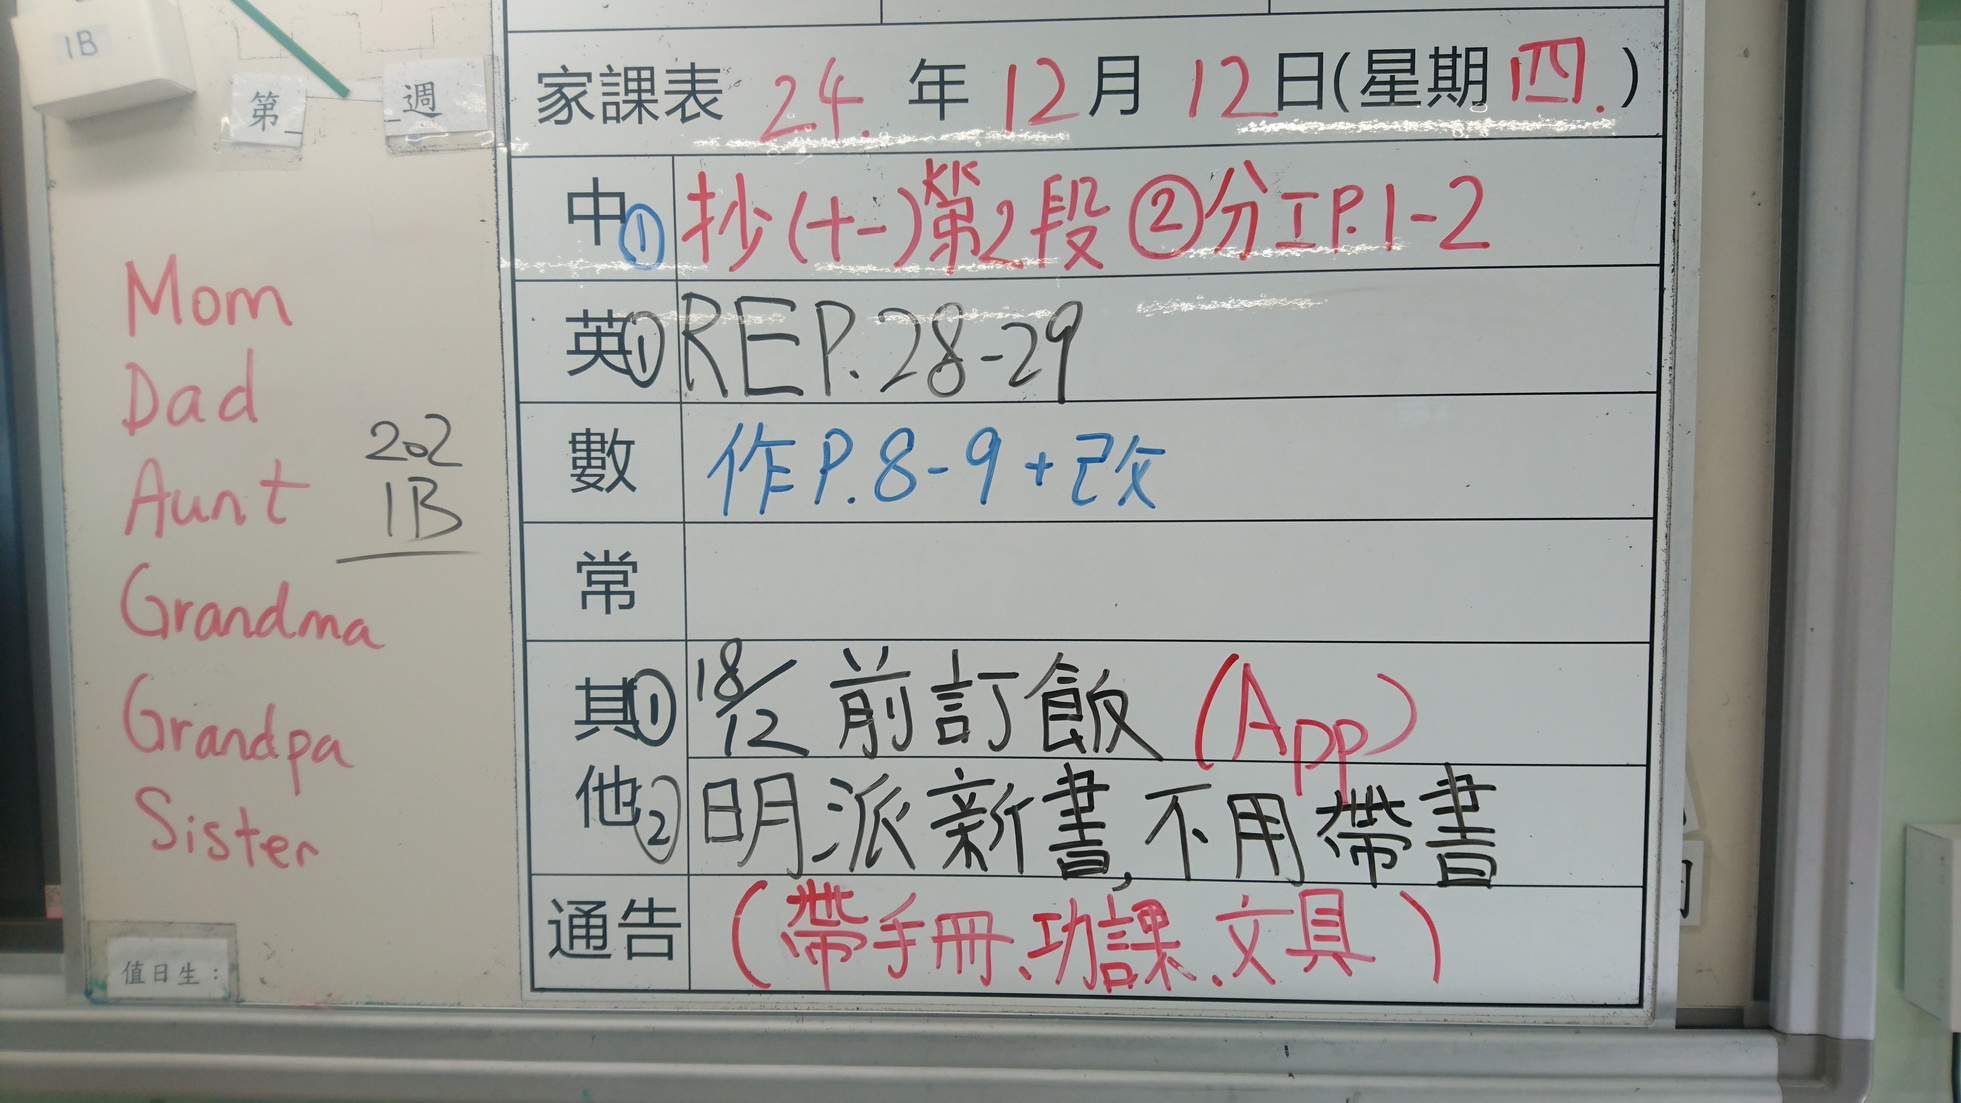 1B
第_週
家課表 24.年12月12日(星期四.)
中①抄(十一)第2段②分工P.1-2
英①REP.28-29
數 作P.8-9+改
常
其他
①18/12前訂飯(App)
②明派新書,不用帶書
通告(帶手冊、功課、文具)
Mom
Dad
Aunt
Grandma
Grandpa
Sister
202
1B
值日生：